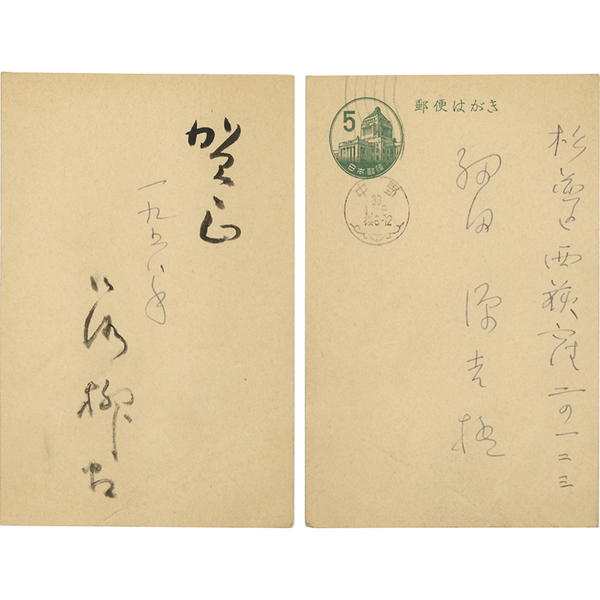 賀正
一九五八年
郵便はがき
5
日本郵便
中野
33
6-12
杉並区西荻窪二の一二三
細田源吉様